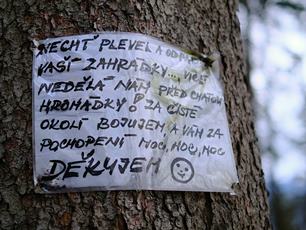 NECHŤ PLEVEL A ODPAD
VAŠÍ ZAHRÁDKY... VÍCE
NEDĚLÁ NÁM PŘED CHATOU
HROMÁDKY! ZA ČISTÉ
OKOLÍ BOJUJEM, A VÁM ZA
POCHOPENÍ MOC, MOC, MOC
DĚKUJEM